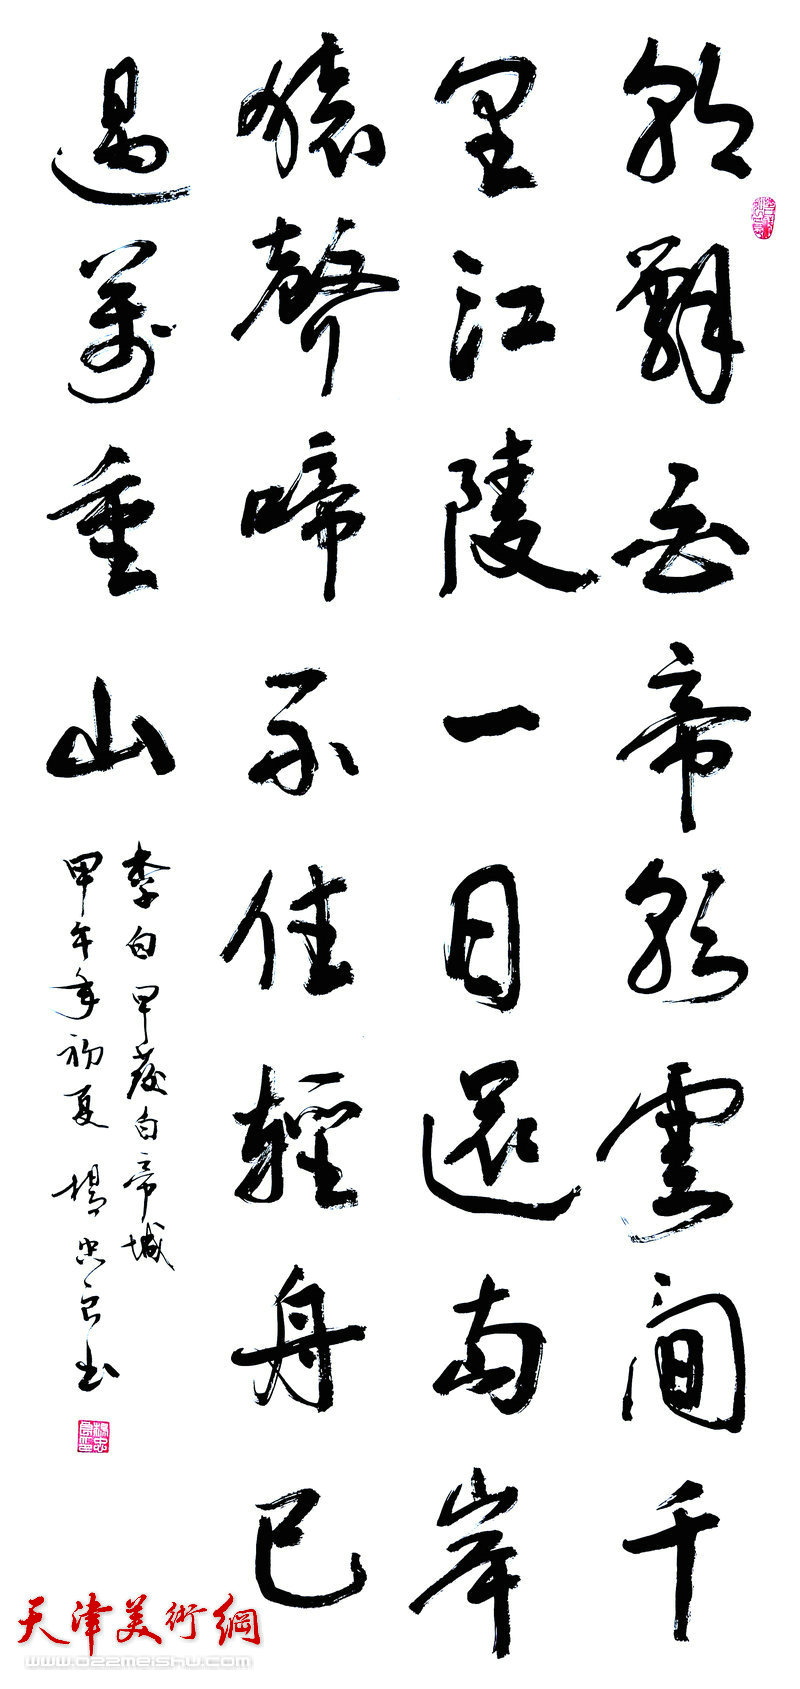 朝辭白帝彩雲間千
里江陵一日還兩岸
猿聲啼不住輕舟已
過萬重山
李白早發白帝城
甲午年初夏 楊忠良书
楊忠良印
天津美術網
www.022meishu.com